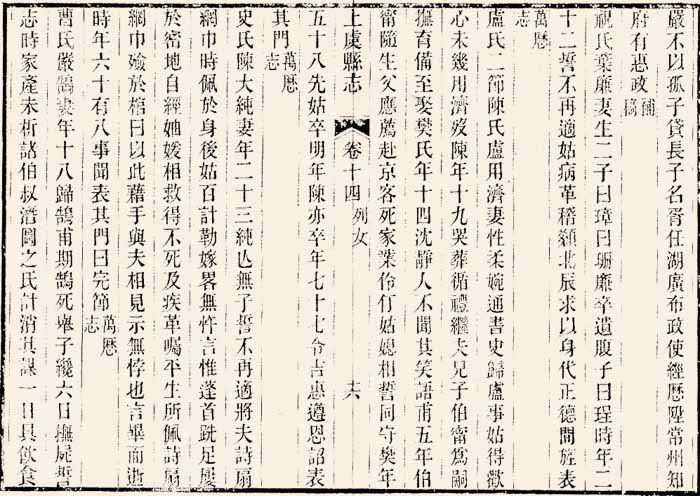 嚴不以孤子貸長子名胥任湖廣布政使經歷陞常州知
府有惠政 備稿
祝氏葉廉妻生二子曰璋曰珊廉卒遺腹子曰珵時年二
十二誓不再適姑病革稽顙北辰求以身代正德間旌表
萬歷志
盧氏二節陳氏盧用濟妻性柔婉通書史歸盧事姑得歡
心未幾用濟歿陳年十九哭葬循禮繼夫兄子伯甯為嗣
撫育備至娶樊氏年十四沈靜人不聞其笑語甫五年伯
甯隨生父應薦赴京客死家業伶仃姑媳相誓同守樊年
上虞縣志 卷十四 列女 十六
五十八先姑卒明年陳亦卒年七十七令吉惠遵恩詔表
其門 萬歷志
史氏陳大純妻年二十三純亾無子誓不再適將夫詩扇
網巾時佩於身後姑百計勒嫁畧無忤言惟蓬首跣足屢
於密地自經妯媛相救得不死及疾革囑平生所佩詩扇
網巾殮於棺曰以此藉手與夫相見示無悖也言畢而逝
時年六十有八事聞表其門曰完節 萬歷志
曹氏嚴鵠妻年十八歸鵠甫期鵠死舉子纔六日撫屍誓
志時家產未析諸伯叔潛圖之氏計消其謀一日具飲食